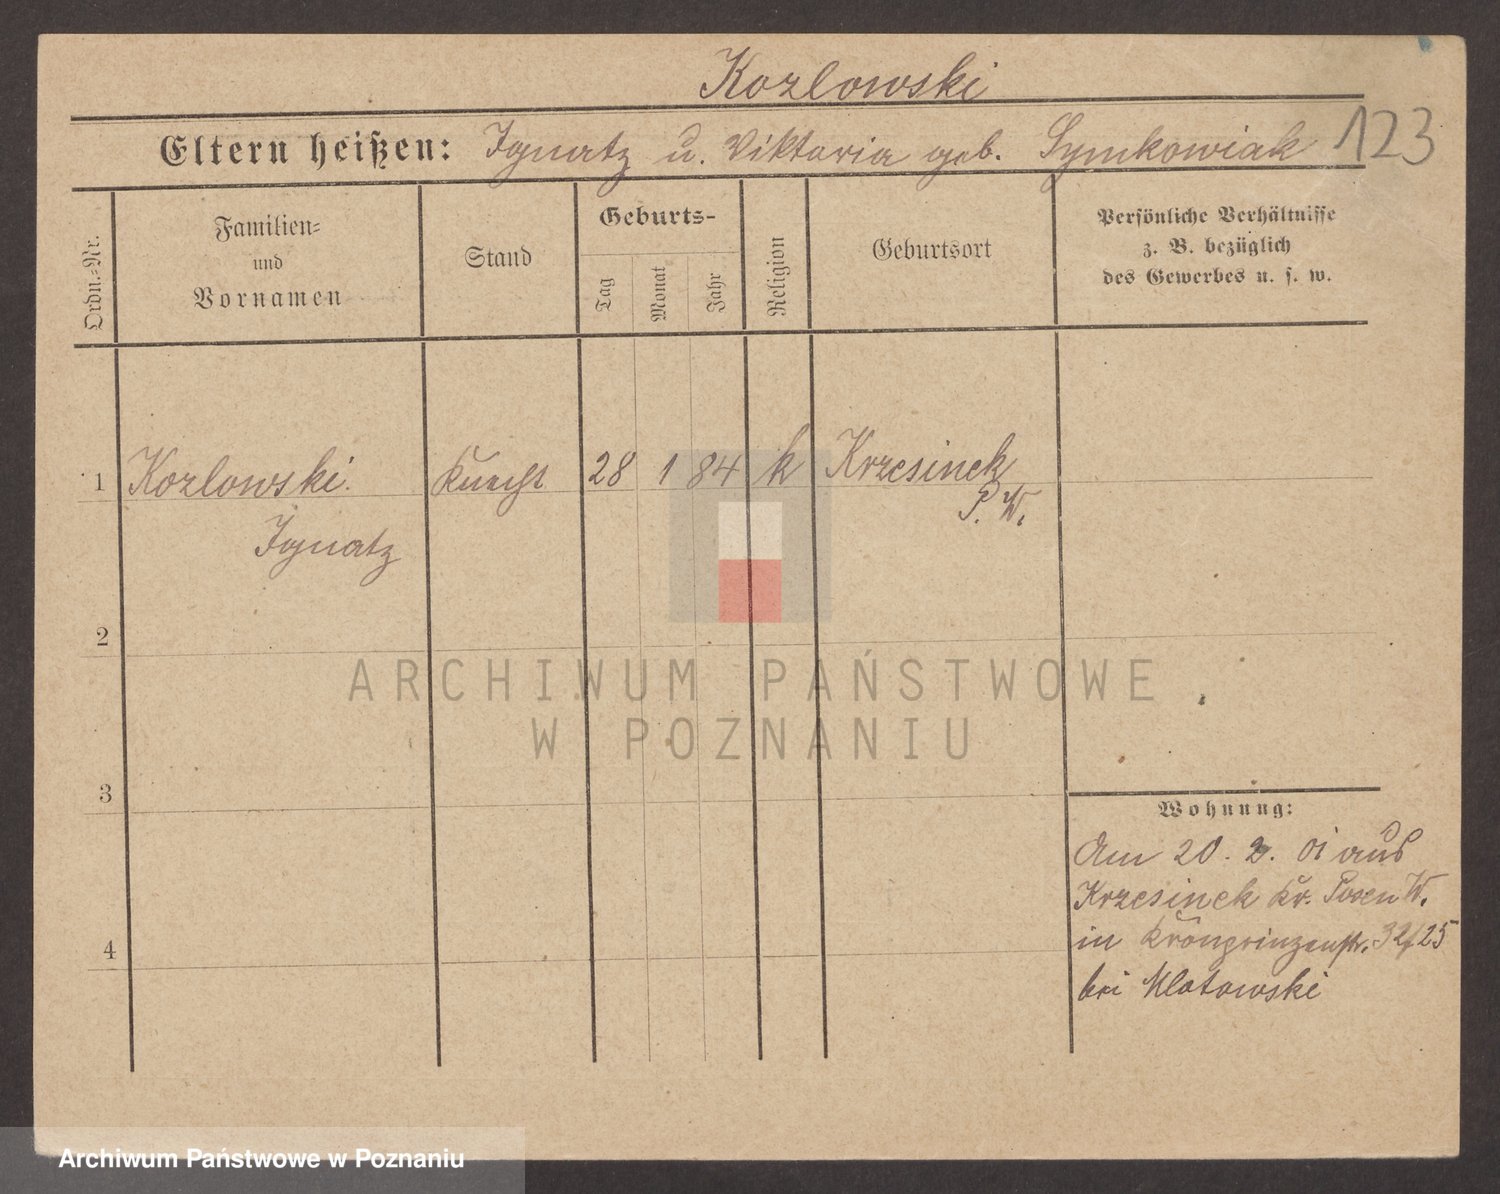 Kozlowski
Eltern heißen: Ignatz u. Viktoria geb. Symkowiak 123
Ordn.=Nr.
Familien=
und
Vornamen
Stand
Geburts-
Tag
Monat
Jahr
Religion
Geburtsort
Persönliche Verhältnisse
z. B. bezüglich
des Gewerbes u. s. w.
1 Kozlowski. Knecht 28 1 84 k Krzesinek
P. W.
Ignatz
2
ARCHIWUM PAŃSTWOWE
W POZNANIU
3
Wohnung:
Am 20. 2. 01 aus
Krzesinek Kr. Posen W.
in Kronprinzenstr. 32/25
4
bei Mlotowski
Archiwum Państwowe w Poznaniu